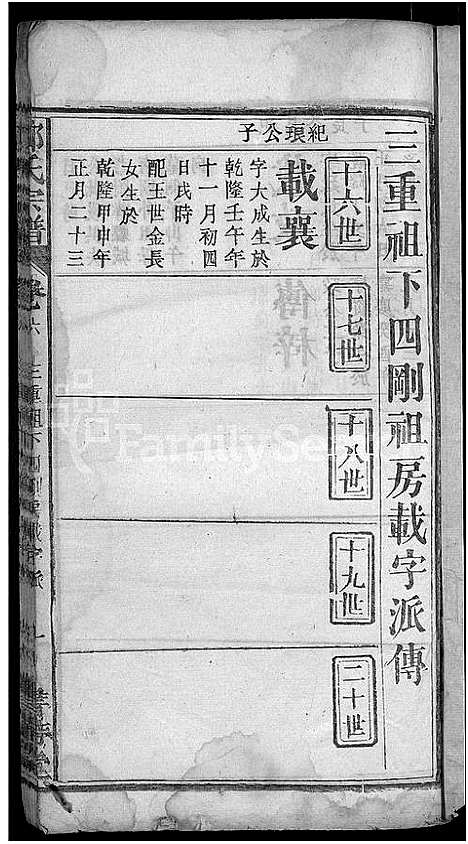 三重祖下四剛祖房載字派傳
十六世
紀琅公子
載襄
字大成生於
乾隆壬午年
十一月初四
日戌時
配王世金長
女生於
乾隆甲申年
正月二十三
十七世
十八世
十九世
二十世
氏宗譜
卷六
三重祖下四剛房載字派
FamilySe